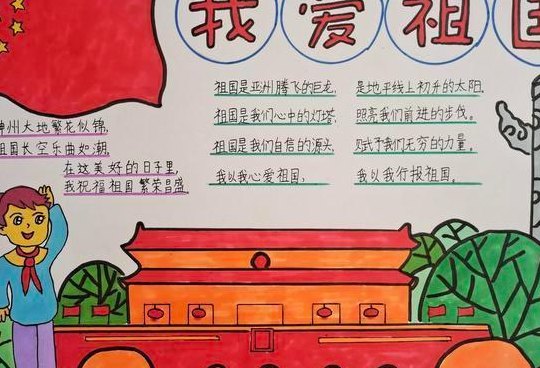 我爱祖国
祖国是亚洲腾飞的巨龙,
是地平线上初升的太阳,
祖国是我们心中的灯塔,
照亮我们前进的步伐。
祖国是我们自信的源头,
赋予我们无穷的力量。
我以我心爱祖国,
我以我行报祖国。
神州大地繁花似锦,
祖国长空乐曲如潮,
在这美好的日子里,
我祝福祖国繁荣昌盛。